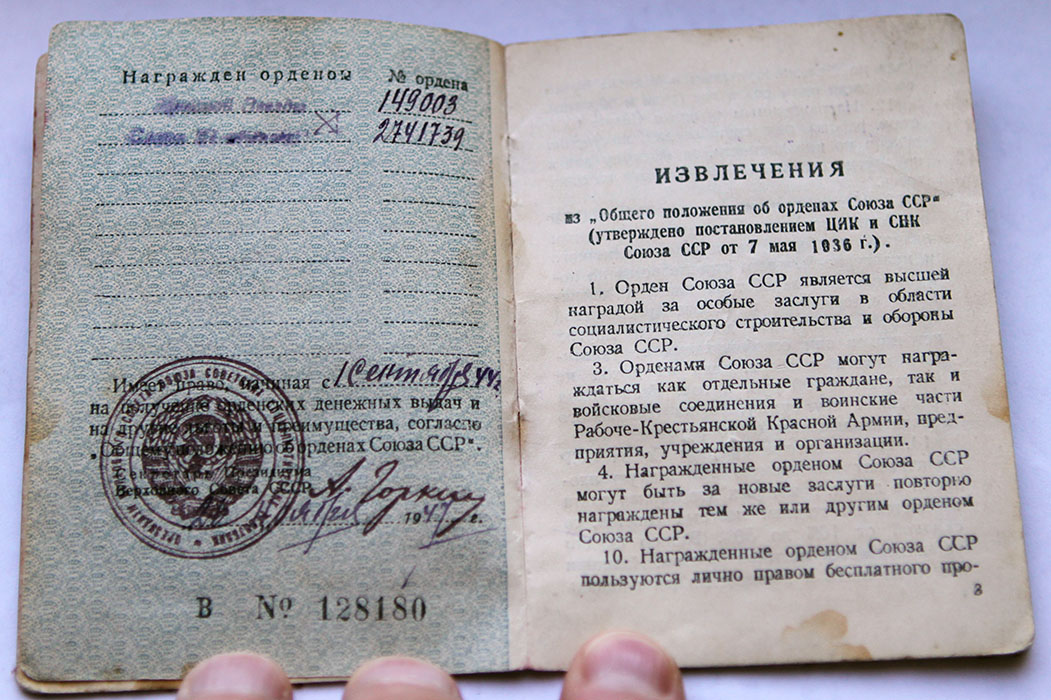 Награжден орденом № ордена
Красной Звезды 149003
Слава III степени 2741739
Имеет право, начиная с 1 сентября 44 г.
на получение орденских денежных выдач и
на другие льготы и преимущества, согласно
„Общему положению об орденах Союза ССР“.
Секретарь Президиума
Верховного Совета СССР А. Горкин
1947 г.
В № 128180
ИЗВЛЕЧЕНИЯ
из „Общего положения об орденах Союза ССР“
(утверждено постановлением ЦИК и СНК
Союза ССР от 7 мая 1936 г.).
1. Орден Союза ССР является высшей
наградой за особые заслуги в области
социалистического строительства и обороны
Союза ССР.
3. Орденами Союза ССР могут награ-
ждаться как отдельные граждане, так и
войсковые соединения и воинские части
Рабоче-Крестьянской Красной Армии, пред-
приятия, учреждения и организации.
4. Награжденные орденом Союза ССР
могут быть за новые заслуги повторно
награждены тем же или другим орденом
Союза ССР.
10. Награжденные орденом Союза ССР
пользуются лично правом бесплатного про-
3